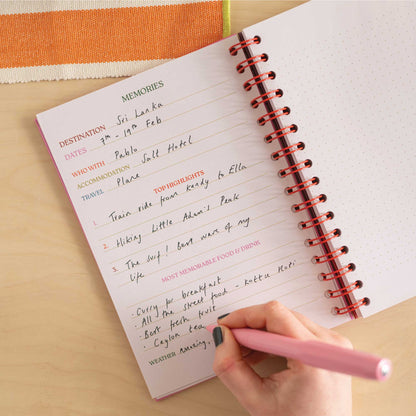 MEMORIES
DESTINATION Sri Lanka
DATES 7th - 19th Feb
WHO WITH Pablo
ACCOMMODATION Salt Hotel
TRAVEL Plane
TOP HIGHLIGHTS
1. Train ride from Kandy to Ella
2. Hiking Little Adam's Peak
3. The surf! Best waves of my
life
MOST MEMORABLE FOOD & DRINK
· Curry for breakfast
· All the street food - Kottu Roti
· Best fresh fruit
· Ceylon tea
WEATHER Amazing,